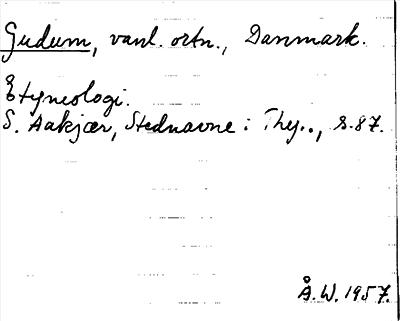 Gudum, vanl. ortn., Danmark.
Etymologi.
S. Aakjær, Stednavne i Thy.., s. 87.
Å.W. 1957.